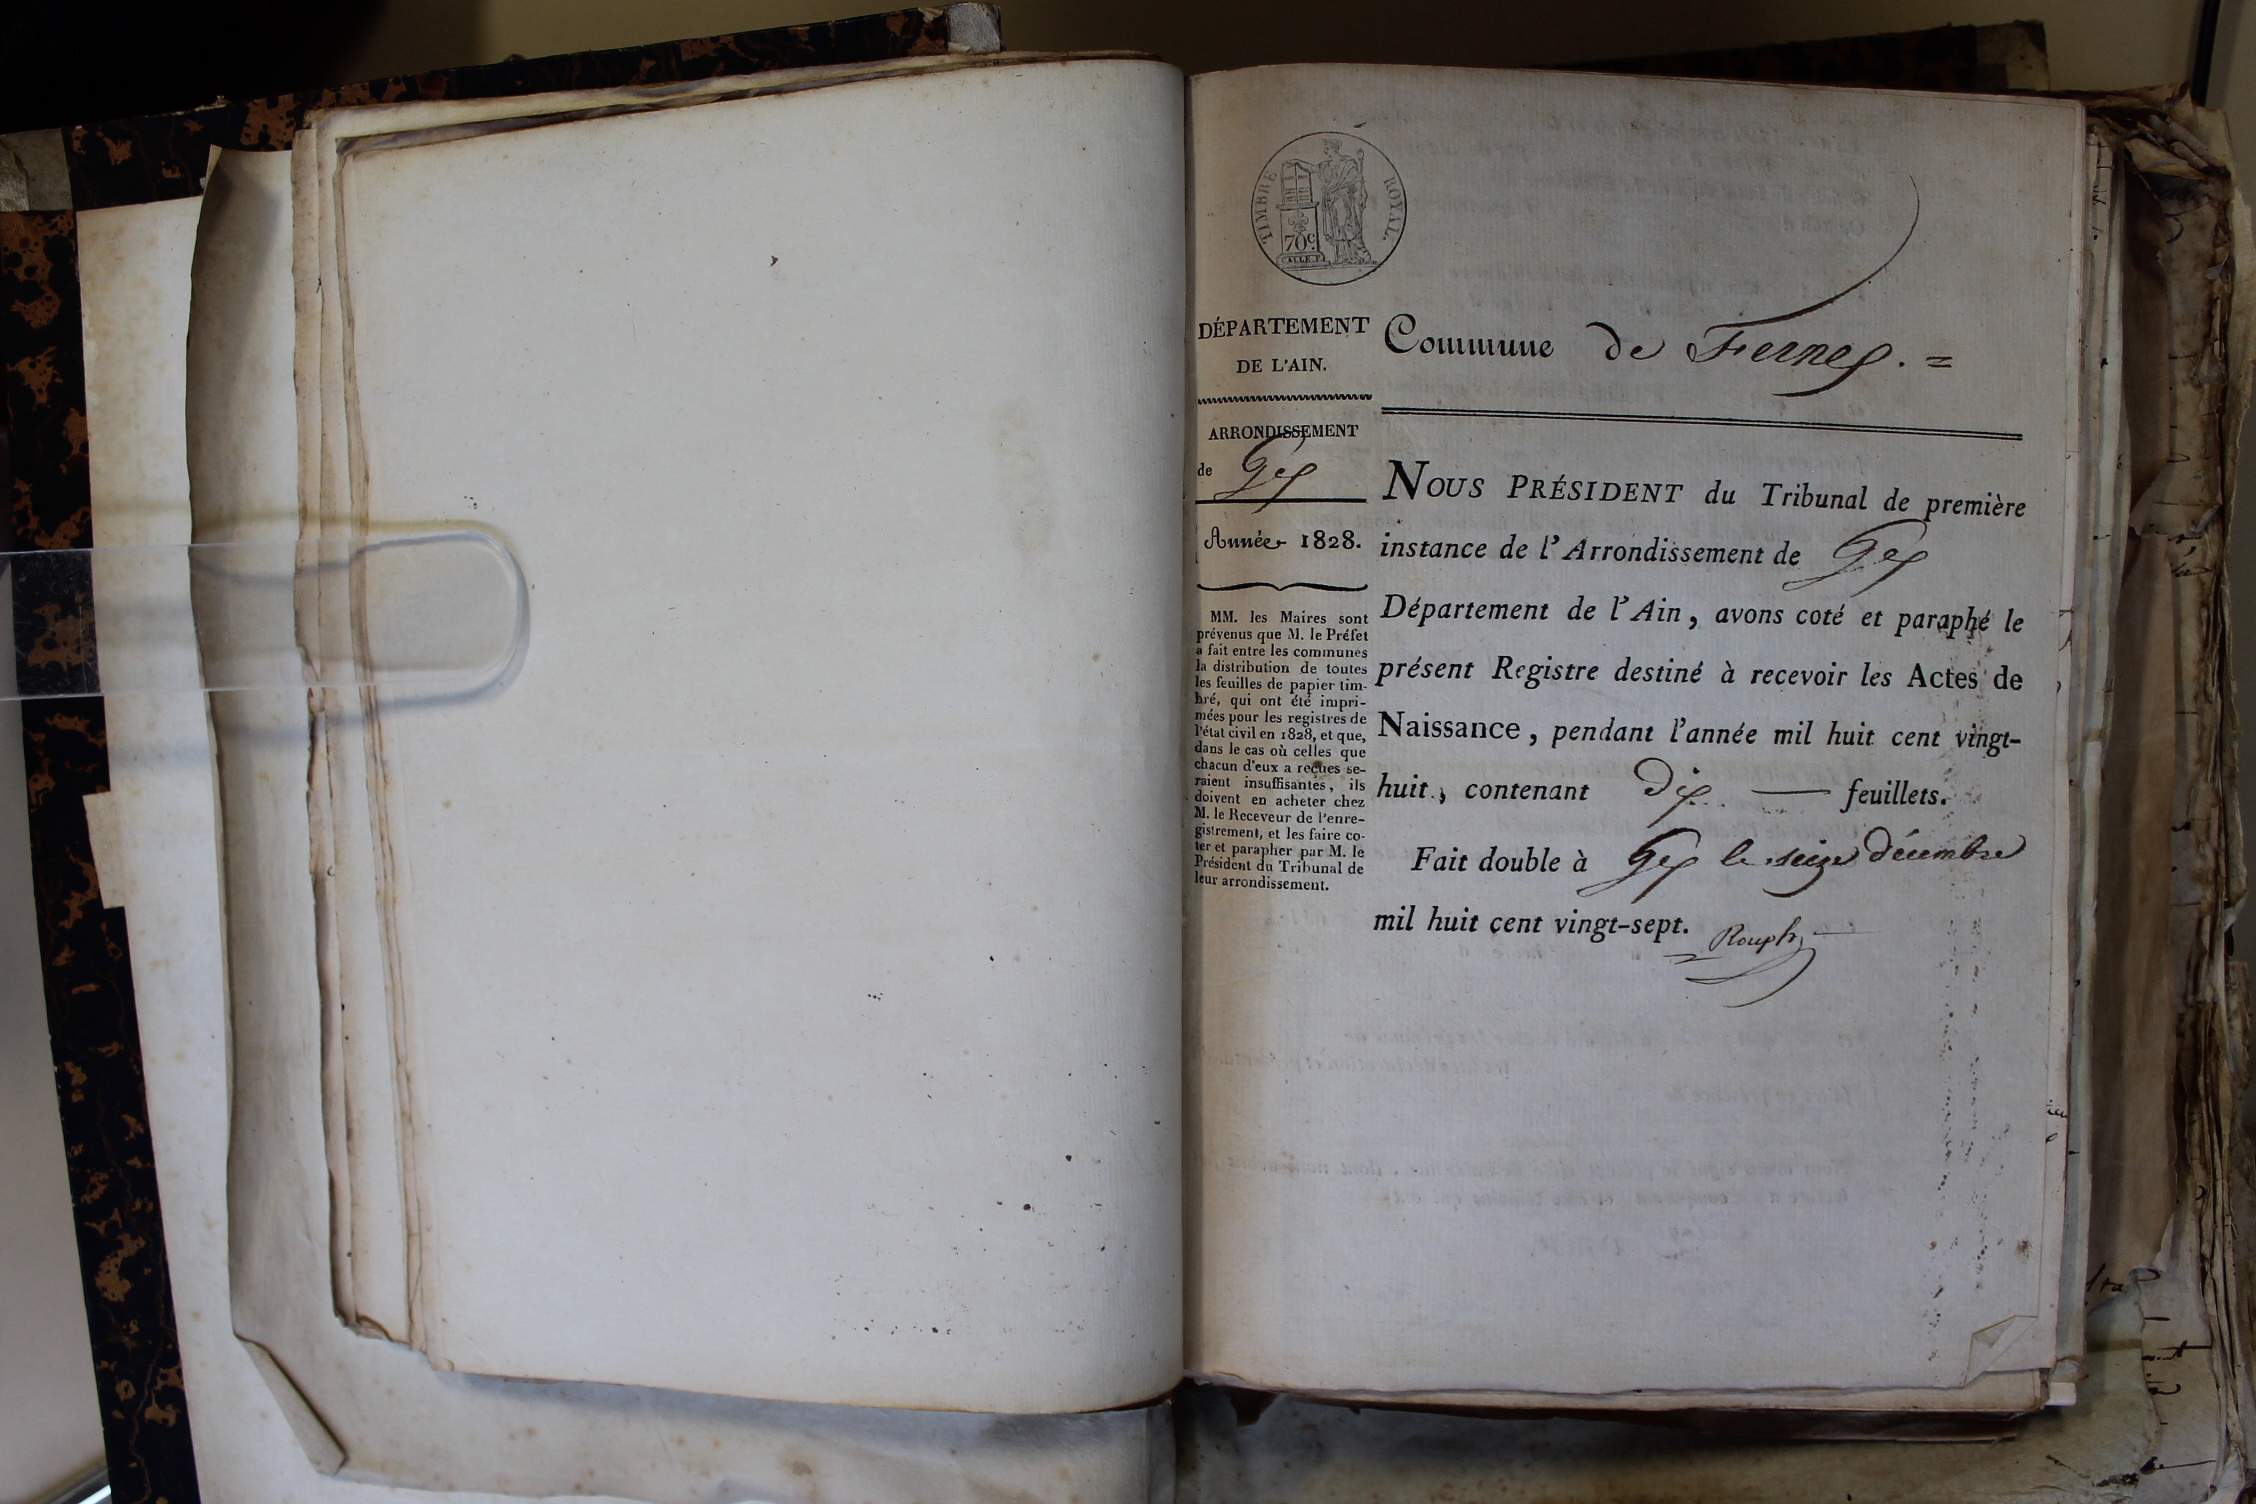 TIMBRE ROYAL.
70c.
DÉPARTEMENT
DE L'AIN.
ARRONDISSEMENT
de Gex
Année 1828.
MM. les Maires sont
prévenus que M. le Préfet
a fait entre les communes
la distribution de toutes
les feuilles de papier tim-
bré, qui ont été impri-
mées pour les registres de
l'état civil en 1828, et que,
dans le cas où celles que
chacun d'eux a reçues se-
raient insuffisantes, ils
doivent en acheter chez
M. le Receveur de l'enre-
gistrement, et les faire co-
ter et parapher par M. le
Président du Tribunal de
leur arrondissement.
Commune de Ferney. =
NOUS PRÉSIDENT du Tribunal de première
instance de l'Arrondissement de Gex
Département de l'Ain, avons coté et paraphé le
présent Registre destiné à recevoir les Actes de
Naissance, pendant l'année mil huit cent vingt-
huit, contenant Dix — feuillets.
Fait double à Gex le seize décembre
mil huit cent vingt-sept.